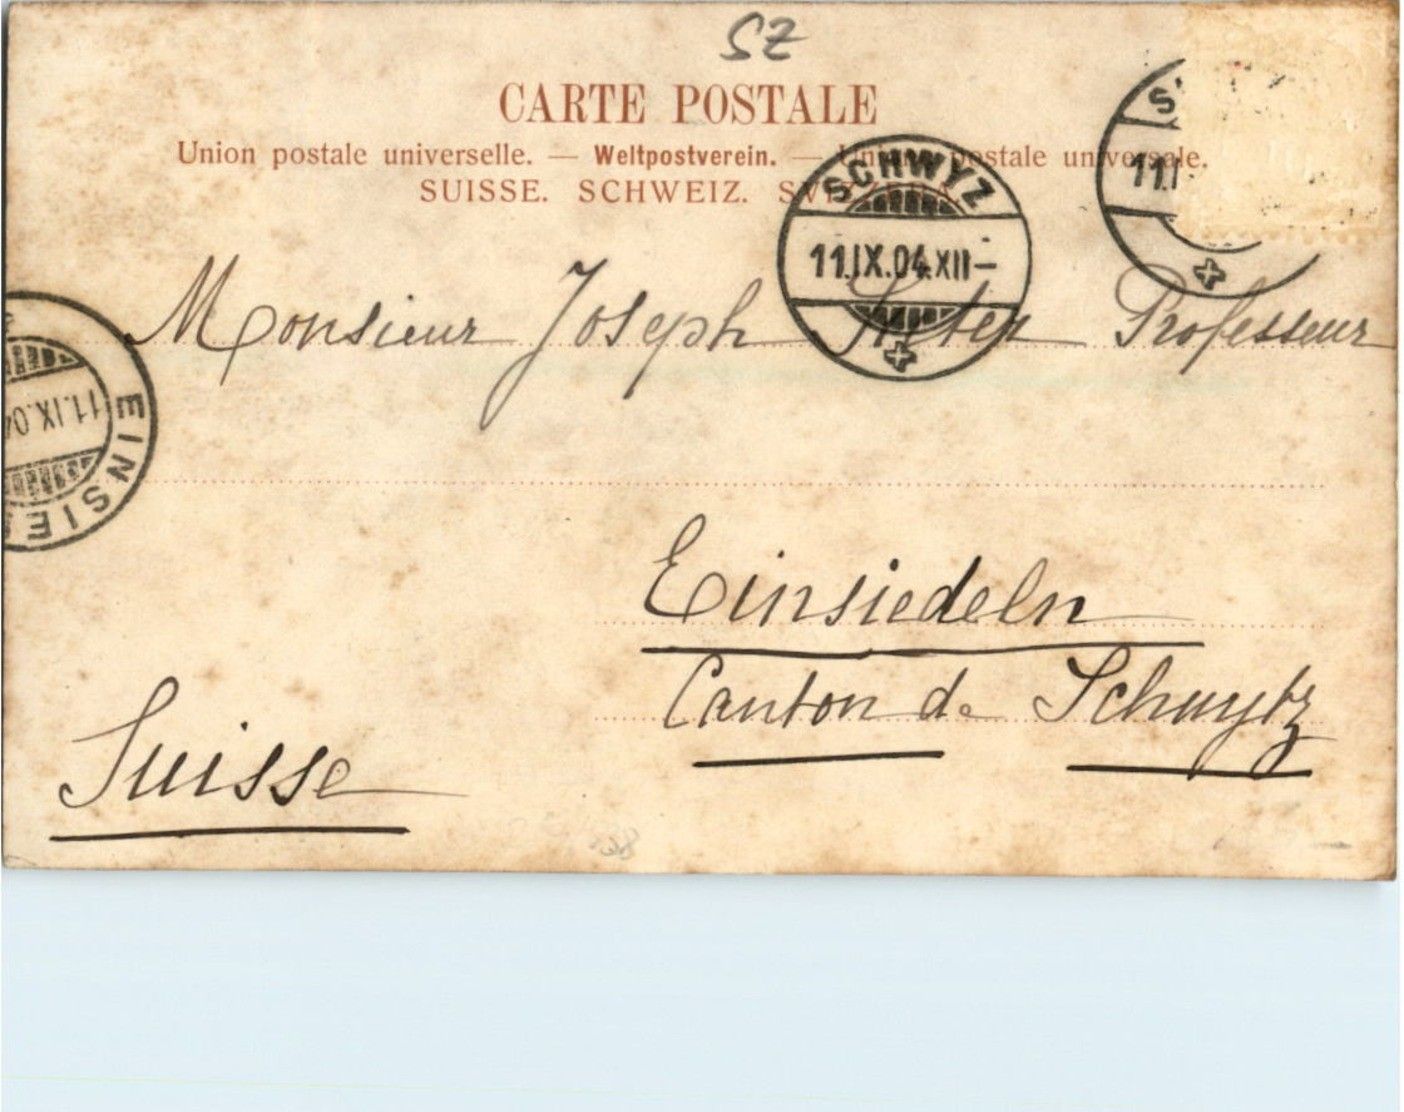 SZ
CARTE POSTALE
Union postale universelle. — Weltpostverein. — Unione postale universale.
SUISSE. SCHWEIZ. SVIZZERA.
SCHWYZ
11.IX.04.XII–
11.I
Monsieur Joseph Professeur
EINSIE
11.IX.04
Einsiedeln
Canton de Schwytz
Suisse